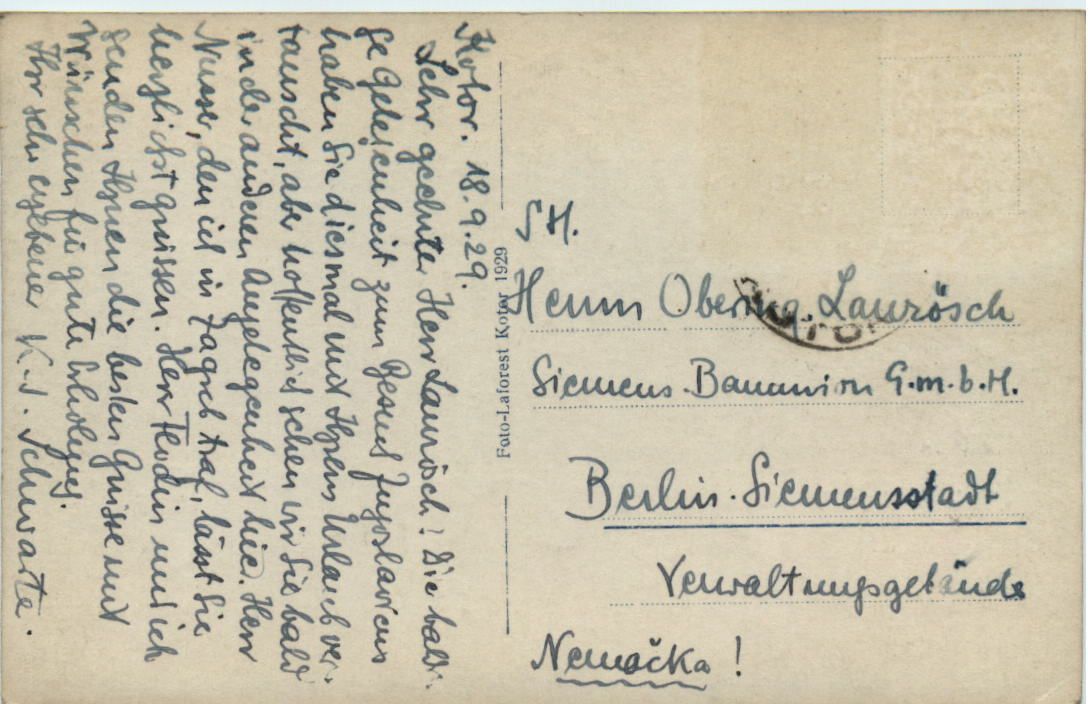 Kotor. 18.9.29.
Sehr geehrter Herr Laurösch! Die baldi-
ge Gelegenheit zum Besuch Jugoslaviens
haben Sie diesmal mit Ihrem Urlaub ver-
tauscht, aber hoffentlich sehen wir Sie bald
in der anderen Angelegenheit hier. Herr
Nusser, den ich in Zagreb traf, lässt Sie
herzlichst grüssen. Herr und ich
senden Ihnen die besten Grüsse und
Wünschen für gute Erholung.
Ihr sehr ergebener K. J. Schwarta.
Foto-Laforest Kotor 1929
S.H.
Herrn Obering. Laurösch
Siemens-Bauunion G.m.b.H.
Berlin-Siemensstadt
Verwaltungsgebäude
Nemačka!